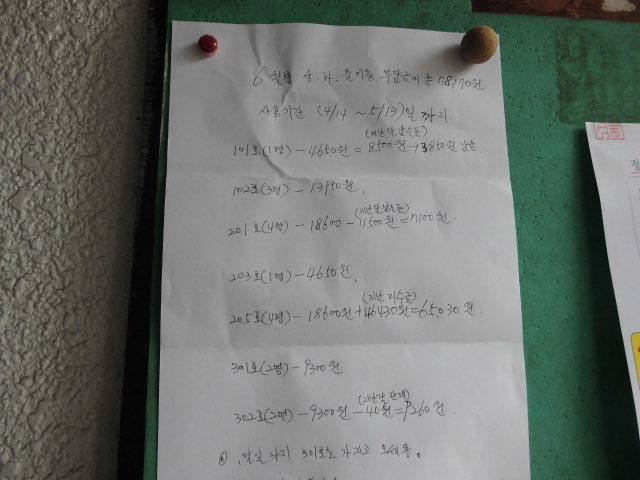 6월분 상.하.물이용.부담금이 총 78970원
사용기간 (4/14 ~ 5/13)일 까지.
(지난달 남은돈)
101호(1명) - 4650원 = 8500원 → 3850원 남음
102호(3명) - 13950원.
(지난달 남은돈)
201호(4명) - 18600 - 11500원 = 7100원.
203호(1명) - 4650원.
(지난 미수금)
205호(4명) - 18600원 + 46430원 = 65.030원.
301호(2명) - 9300원
(지난달 잔액)
302호(2명) - 9300원 - 40원 = 9260원.
까지 301호로 가지고 오세용.